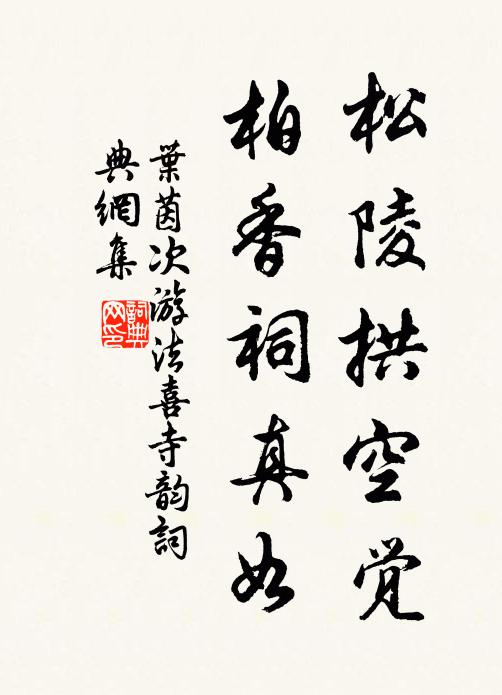 松陵拱空觉
柏香祠真如
葉茵次游法喜寺韵詞
典網集
詞典網印